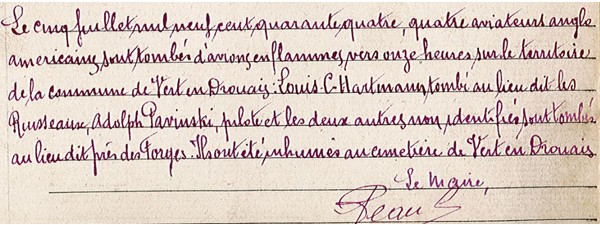 Le cinq juillet mil neuf cent quarante quatre, quatre aviateurs anglo
americains, sont tombés d'avions en flammes, vers onze heures, sur le territoire
de la commune de Vert en Drouais: Louis C. Hartmann, tombé au lieu dit les
Russeaux, Adolph Pavinski, pilote et les deux autres non identifiés, sont tombés
au lieu dit près des Forges. Ils ont été inhumés au cimetière de Vert en Drouais
Le Maire,